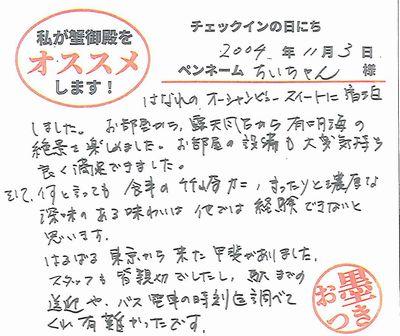 私が蟹御殿を
オススメ
します！
チェックインの日にち
2004年11月3日
ペンネーム ちいちゃん 様
はなれのオーシャンビュースイートに宿泊
しました。お部屋から、露天風呂から有明海の
絶景を楽しめました。お部屋の設備も大変気持ち
良く満足できました。
そして、何と言っても食事の竹崎カニ、まったりと濃厚な
深味のある味わいは他では経験できないと
思います。
はるばる東京から来た甲斐がありました。
スタッフも皆親切でしたし、駅までの
送迎や、バス電車の時刻迄調べて
くれ有難かったです。
お墨つき